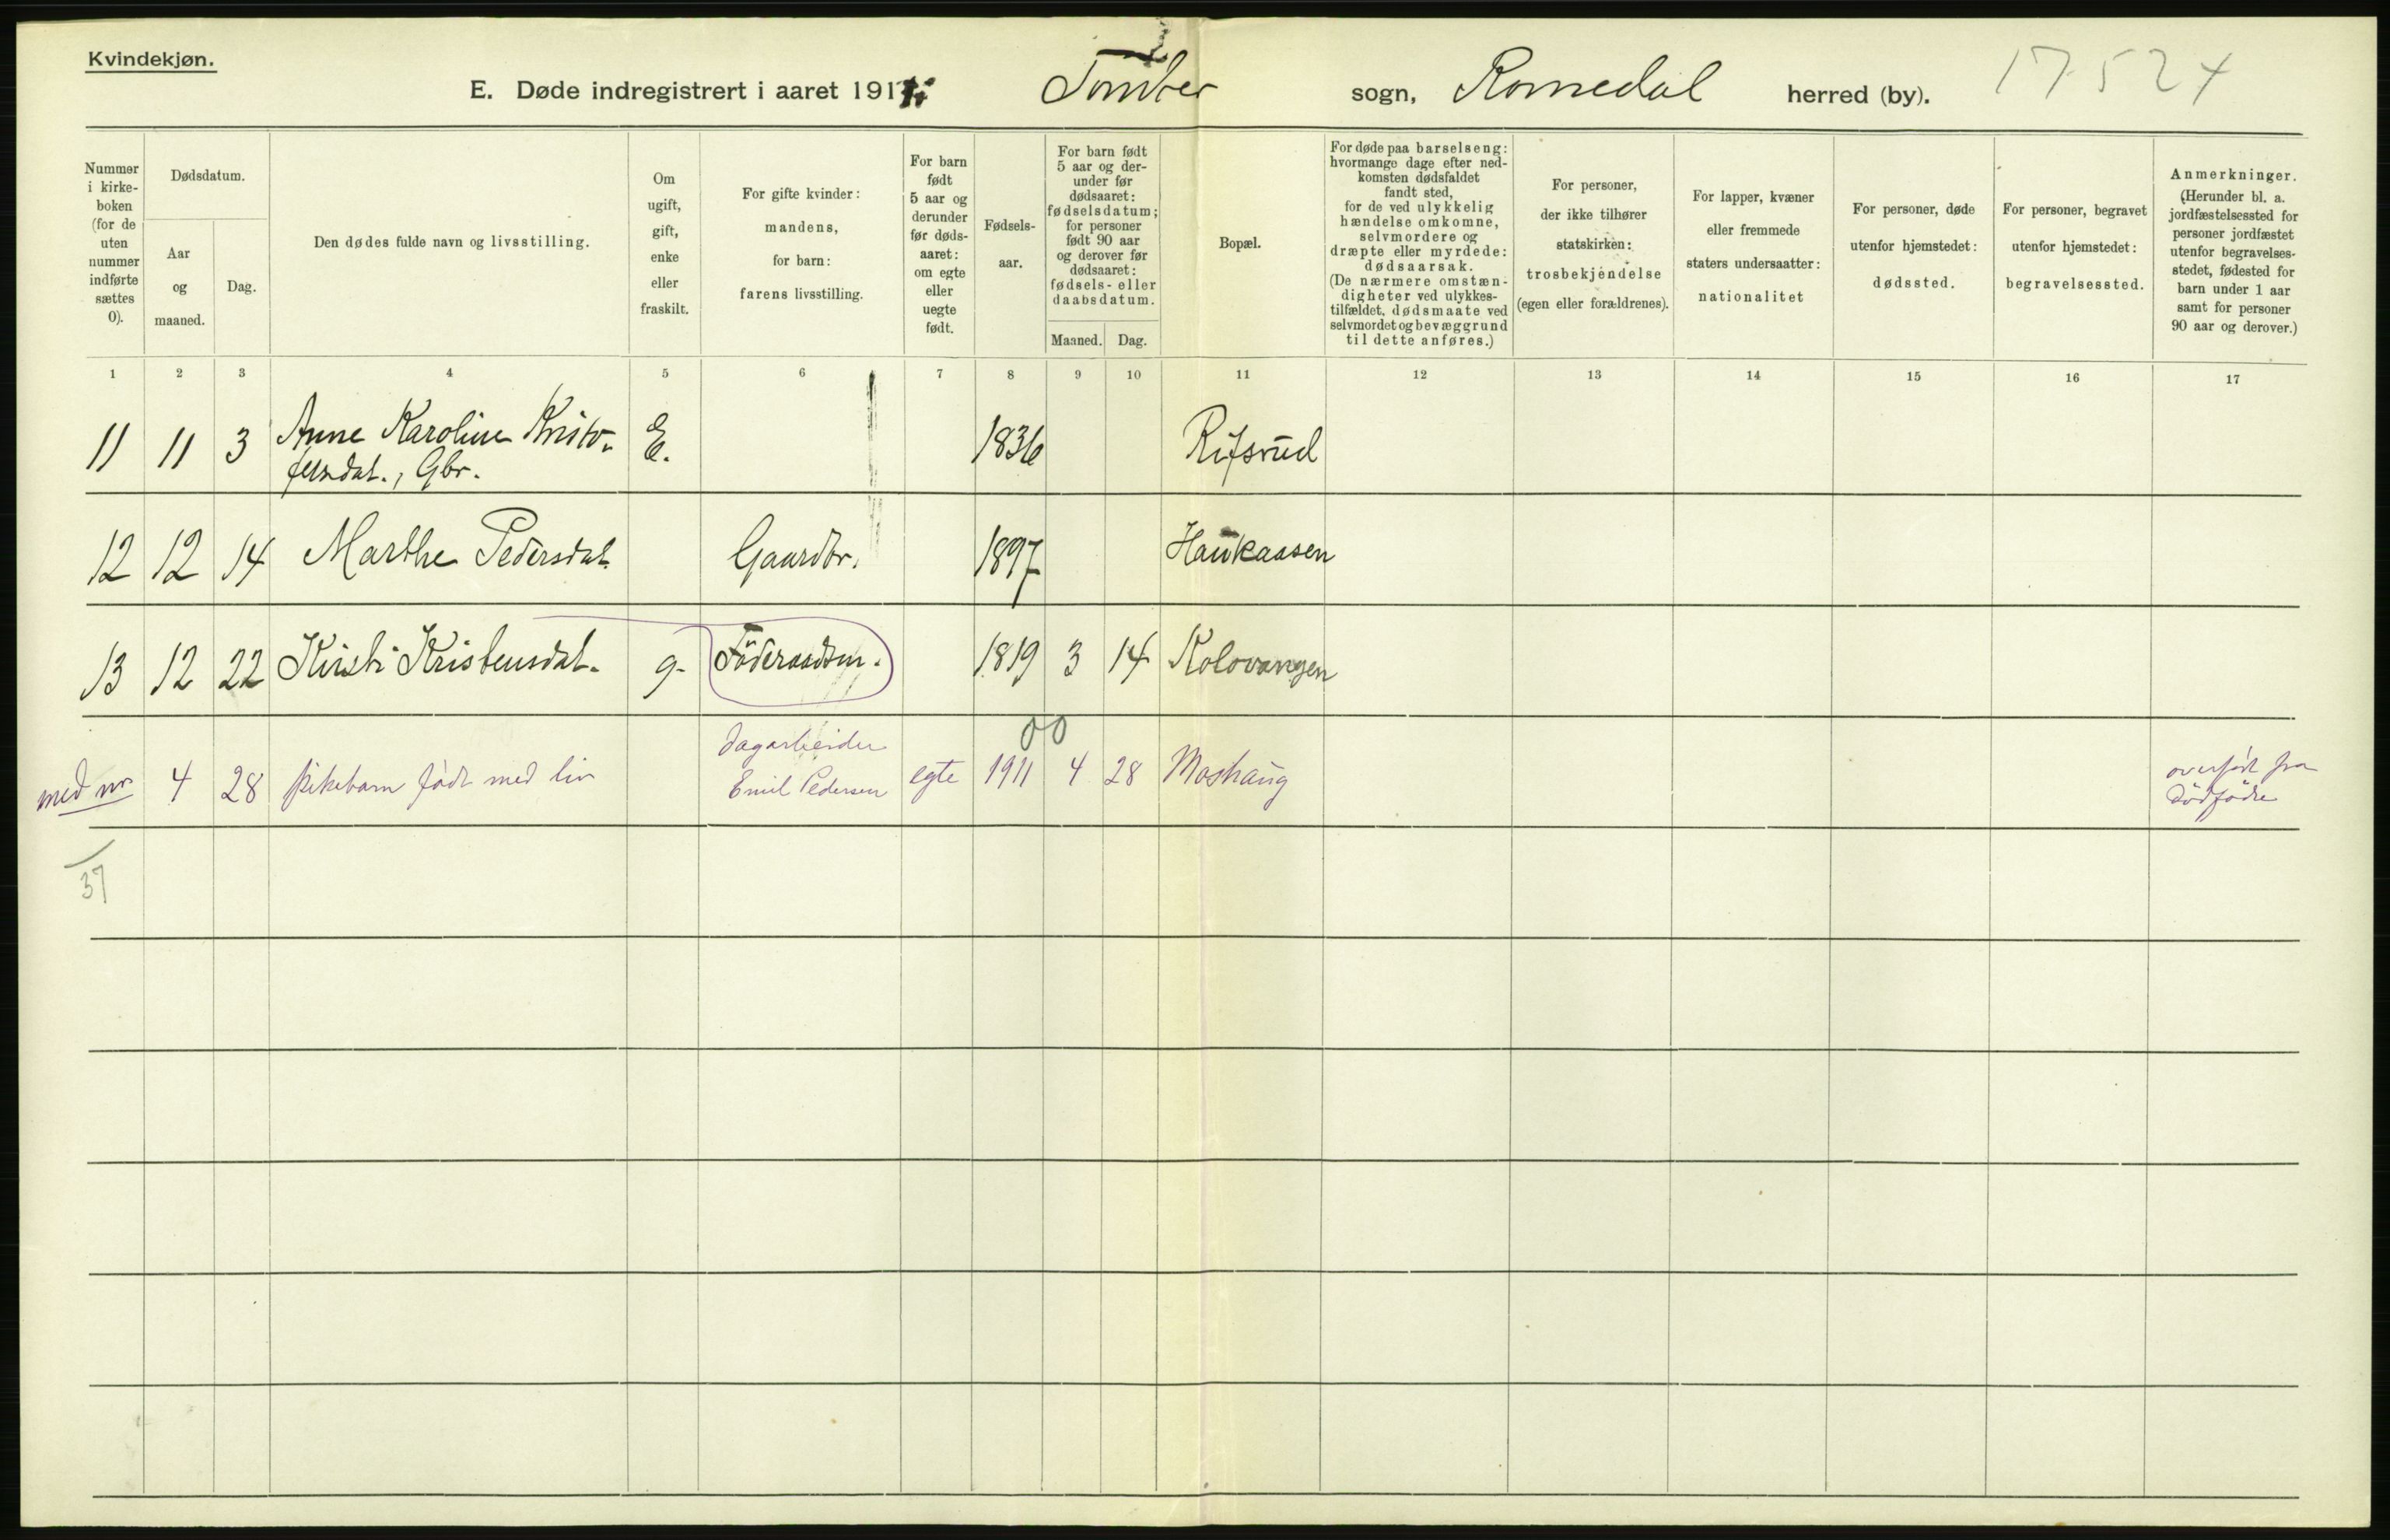 Kvindekjøn.
E. Døde indregistrert i aaret 1911 i Tomter sogn, Romedal herred (by). 17524
Nummer i kirke-boken (for de uten nummer indførte sættes 0).
Dødsdatum.
Aar og maaned.
Dag.
Den dødes fulde navn og livsstilling.
Om ugift, gift, enke eller fraskilt.
For gifte kvinder: mandens, for barn: farens livsstilling.
For barn født 5 aar og derunder før døds-aaret: om egte eller uegte født.
Fødsels-aar.
For barn født 5 aar og der-under før dødsaaret: fødselsdatum; for personer født 90 aar og derover før dødsaaret: fødsels- eller daabsdatum.
Maaned. Dag.
Bopæl.
For døde paa barselseng: hvormange dage efter ned-komsten dødsfaldet fandt sted, for de ved ulykkelig hændelse omkomne, selvmordere og dræpte eller myrdede: dødsaarsak. (De nærmere omstæn-digheter ved ulykkes-tilfældet, dødsmaate ved selvmordet og bevæggrund til dette anføres.)
For personer, der ikke tilhører statskirken: trosbekjendelse (egen eller forældrenes).
For lapper, kvæner eller fremmede staters undersaatter: nationalitet
For personer, døde utenfor hjemstedet: dødssted.
For personer, begravet utenfor hjemstedet: begravelsessted.
Anmerkninger. (Herunder bl. a. jordfæstelsessted for personer jordfæstet utenfor begravelses-stedet, fødested for barn under 1 aar samt for personer 90 aar og derover.)
1 2 3 4 5 6 7 8 9 10 11 12 13 14 15 16 17
11 11 3 Anne Karoline Kristo- E. 1836 Rifsrud
fersdat., Gbr.
12 12 14 Marthe Pedersdat. Gaardbr. 1897 Haukaasen
13 12 22 Kirsti Kristensdat. g- Föderaadsm. 1819 3 14 Kolovangen
00
med nr 4 28 pikebarn födt med liv dagarbeider Emil Pedersen egte 1911 4 28 Moshaug overfört fra dödfödte
37